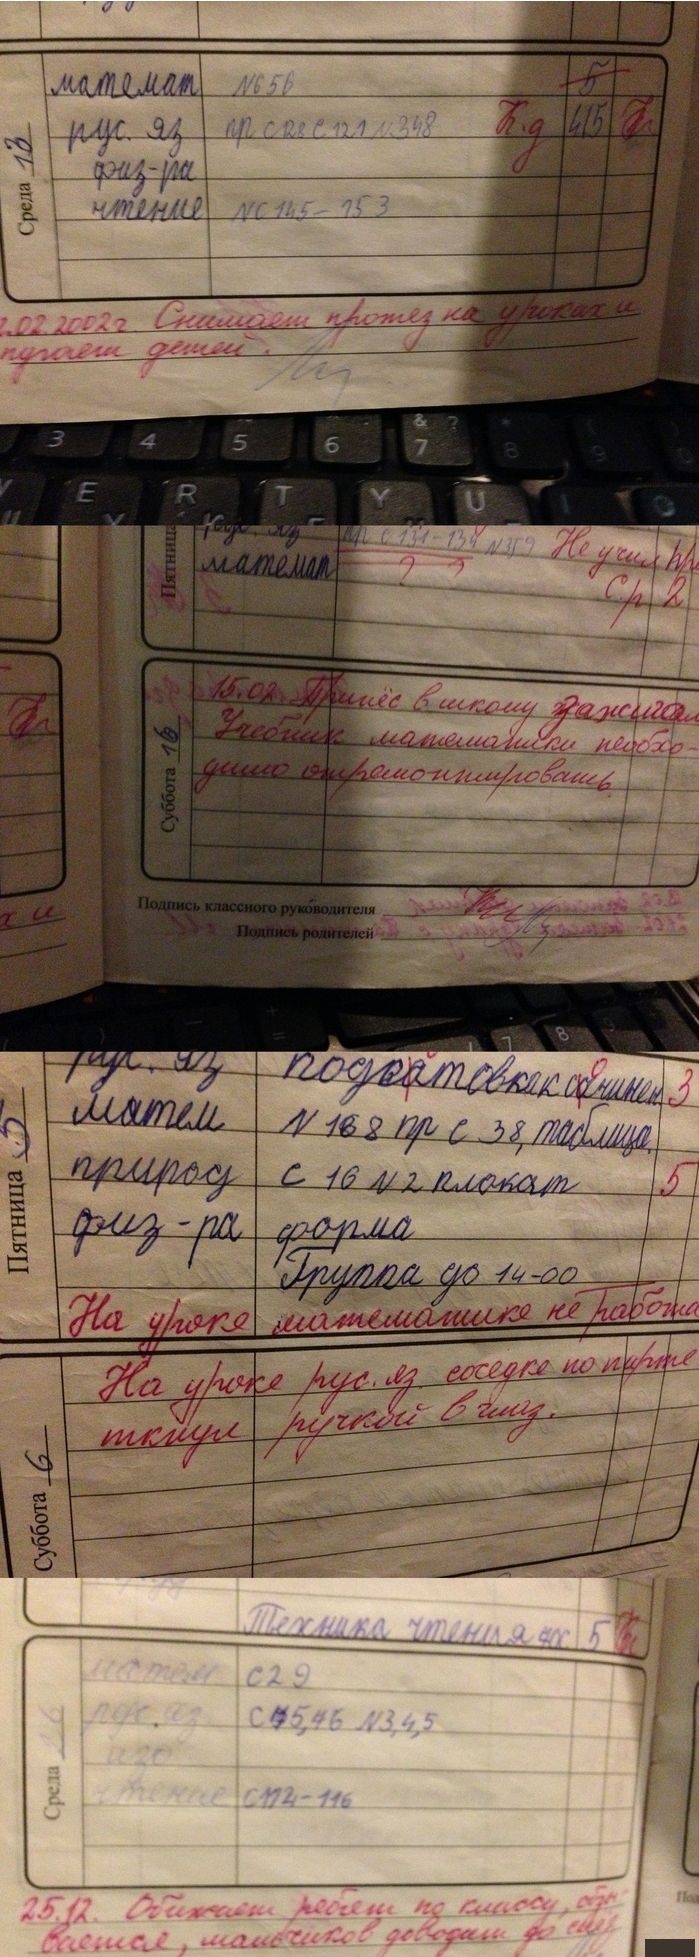 Среда 13
математ № 656 5
рус. яз пр с 128 с 121 № 348 К.д 4/5
физ-ра
чтение № с 145-153
.02 2002г. Снимает протез на уроках и
пугает детей.
3 4 5 6 & 7 ? * 8 9
E R T Y U I O
Пятница
рус. яз пр с 131-134 № 359 Не учил пр
математ С.р 2
Суббота 16
15.02. Принёс в школу зажигал
Учебник математики необхо-
димо отремонтировать.
Подпись классного руководителя
Подпись родителей
х и
7 8 9
Пятница 5
рус. яз подготовка к сочинен 3
матем N 168 пр с 38, таблица.
природ с 16 N 2 плакат 5
физ-ра форма
Группа до 14-00
На уроке математике не работа
Суббота 6
На уроке рус. яз. соседке по парте
ткнул ручкой в глаз.
Техника чтения 5
Среда 26
матем с 29
рус. яз с 45,46 N3,4,5
изо
чтение с 114-116
25.12. Обижает ребят по классу, обзы-
вается, мальчиков доводит до слёз